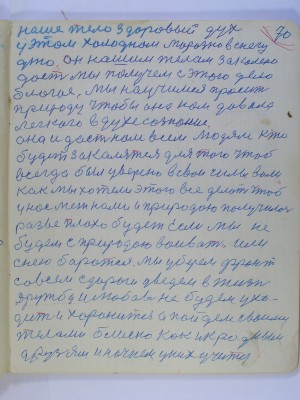 наше тело здоровый дух 70
у этом холодном морозном снегу
это он нашим телам закалено
даст мы получем с этого дело
благое, мы научимся просит
природу чтобы она нам давала
легкого в духе сознание,
она и даст нам всем людям кто
будет закалятся для того чтоб
всегда был уверено в свои силы вам
как мы хотели этого все делат чтоб
у нос меж нами и природою получилос
разве плохо будет если мы не
будем с природою воиват, или
снею боратся, мы уберем фронт
совсем с дороги введем в жизн
дружбу и любов не будем ухо-
дит и хоронится а пойдем своими
телами близко как и к родным
друзям и начнем у них учитц